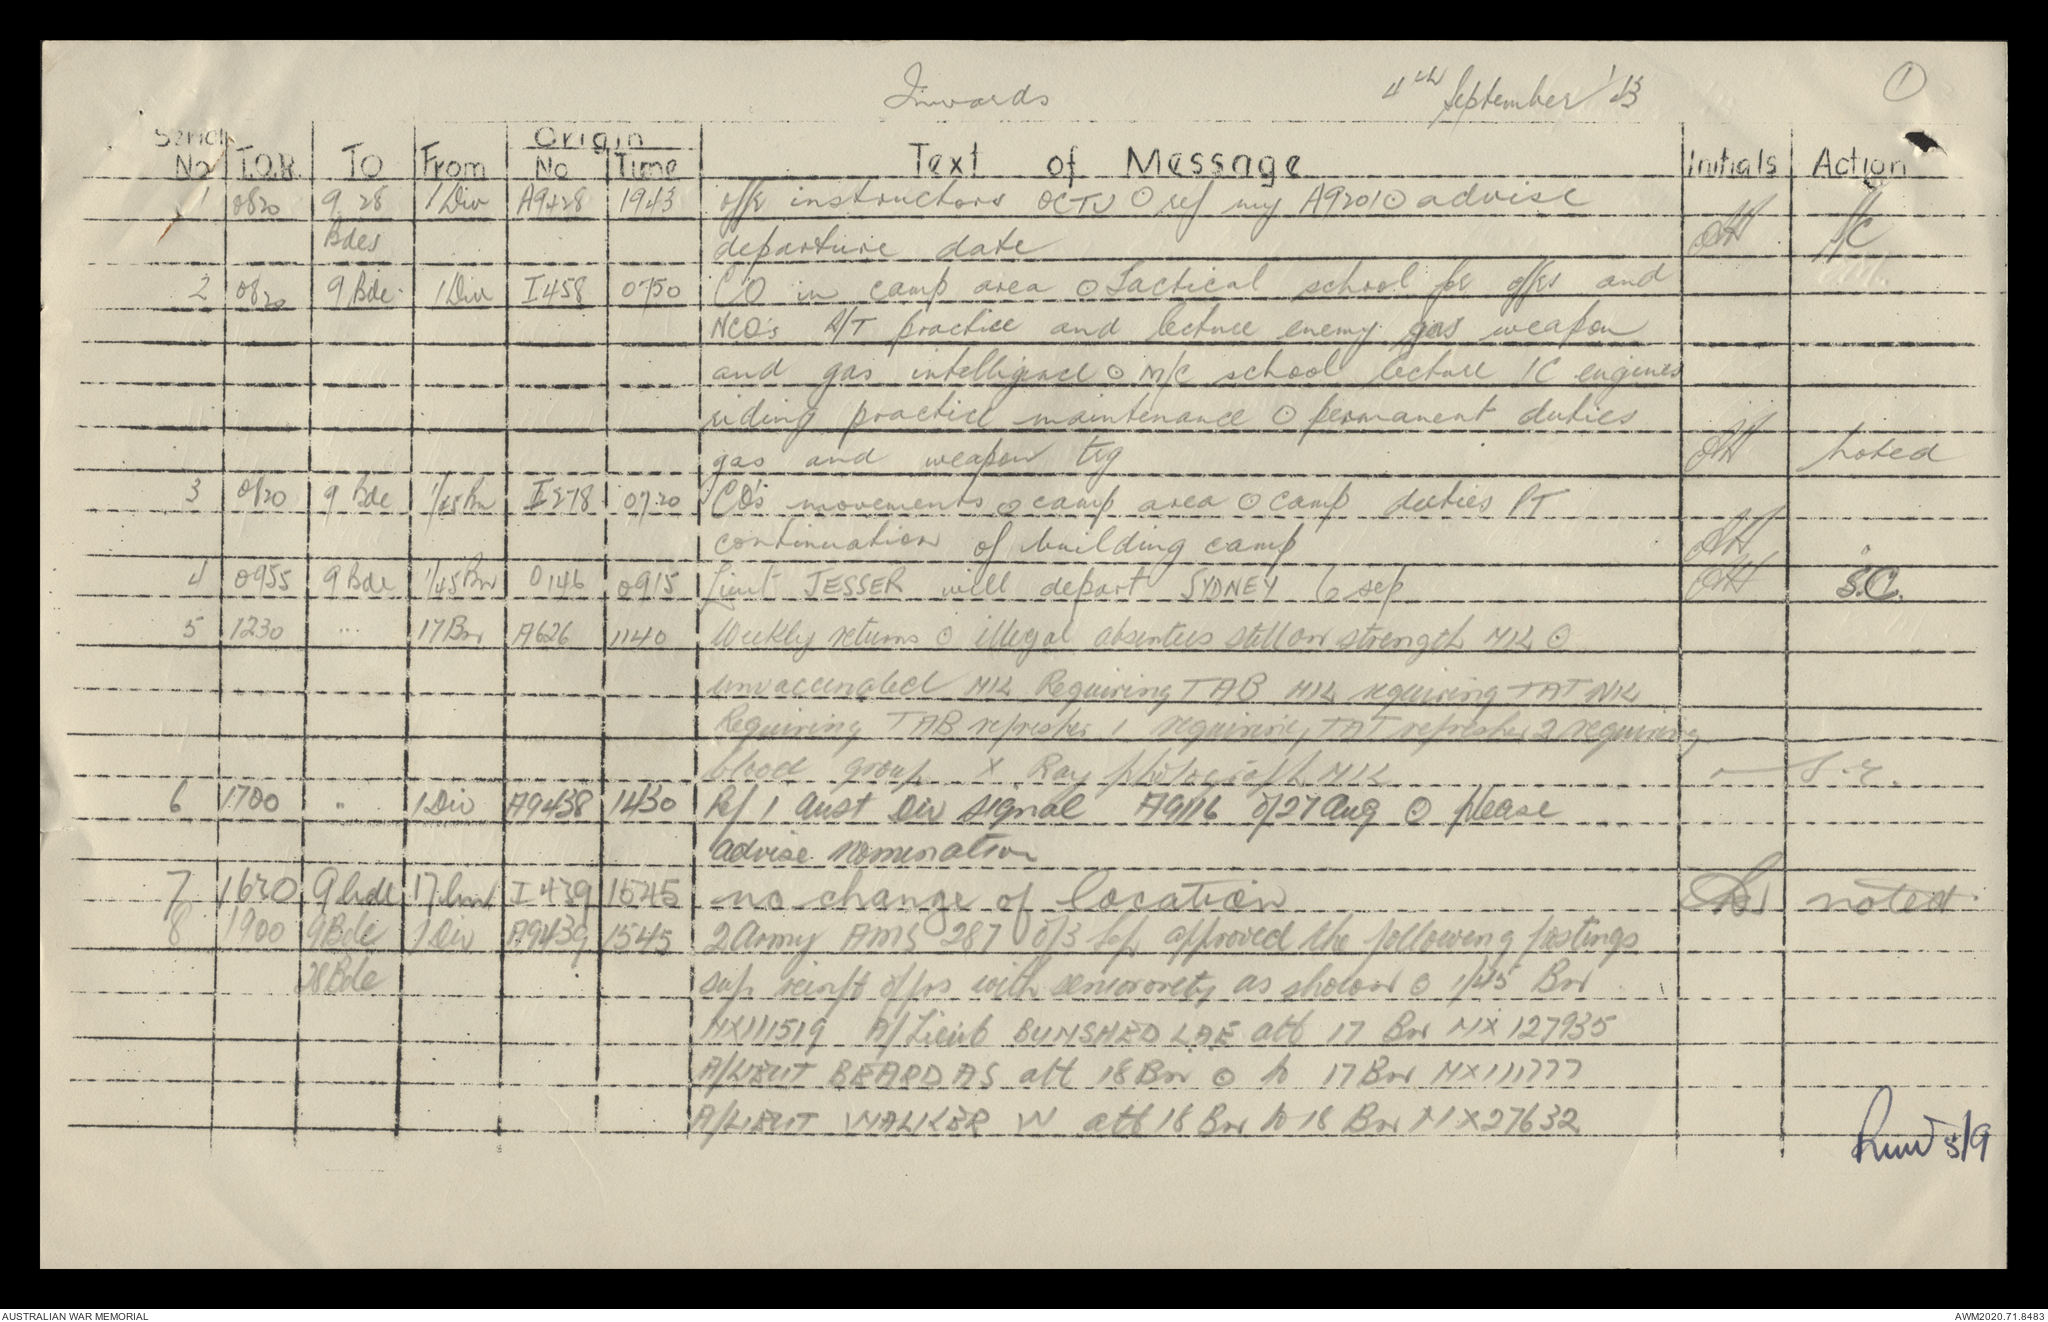 Inwards 4th September '43 1
Serial No T.O.R. TO From Origin No Time Text of Message Initials Action
1 0820 9 28 1 Div A9428 1943 offr instructors OCTU ⊙ ref my A9201 ⊙ advise
Bdes departure date S/C
2 0820 9 Bde 1 Div I458 0750 CO in camp area ⊙ Tactical school for offrs and
NCO's A/T practice and lecture enemy gas weapon
and gas intelligence ⊙ M/C school lecture IC engines
riding practice maintenance ⊙ permanent duties
gas and weapon trg noted
3 0820 9 Bde 1/45 Bn I278 0720 CO's movements ⊙ camp area ⊙ camp duties PT
continuation of building camp "
4 0955 9 Bde 1/45 Bn O146 0915 Lieut JESSER will depart SYDNEY 6 sep S.C.
5 1230 ... 17 Bn A626 1140 Weekly returns ⊙ illegal absentees still on strength NIL ⊙
unvaccinated NIL Requiring TAB NIL requiring TAT NIL
Requiring TAB refresher 1 requiring TAT refresher 2 requiring
blood group X Ray photograph NIL
6 1700 " 1 Div A9438 1430 Ref 1 Aust Div signal A9116 of 27 Aug ⊙ please
advise nomination
7 1630 9 bde 17 bn I439 1545 no change of location noted
8 1900 9 Bde 1 Div A9439 1545 2 Army AMS 287 of 3 Sep approved the following postings
28 Bde sup reinft offrs with seniority as shown ⊙ 1/45 Bn
NX111519 A/Lieut BUMSHED LAE att 17 Bn NX127935
A/LIEUT BEARD AS att 18 Bn ⊙ to 17 Bn NX111777
A/LIEUT WALKER W att 18 Bn to 18 Bn NX27632
5/9
AUSTRALIAN WAR MEMORIAL AWM2020.71.8483